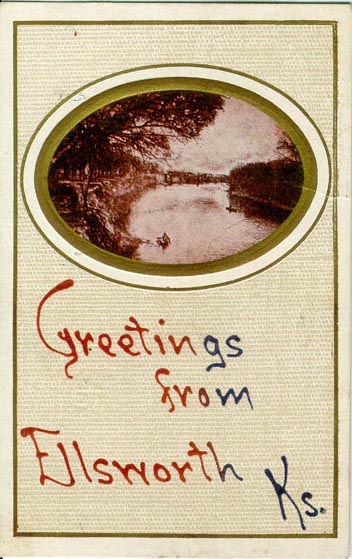 Greetings
from
Ellsworth
Ks.